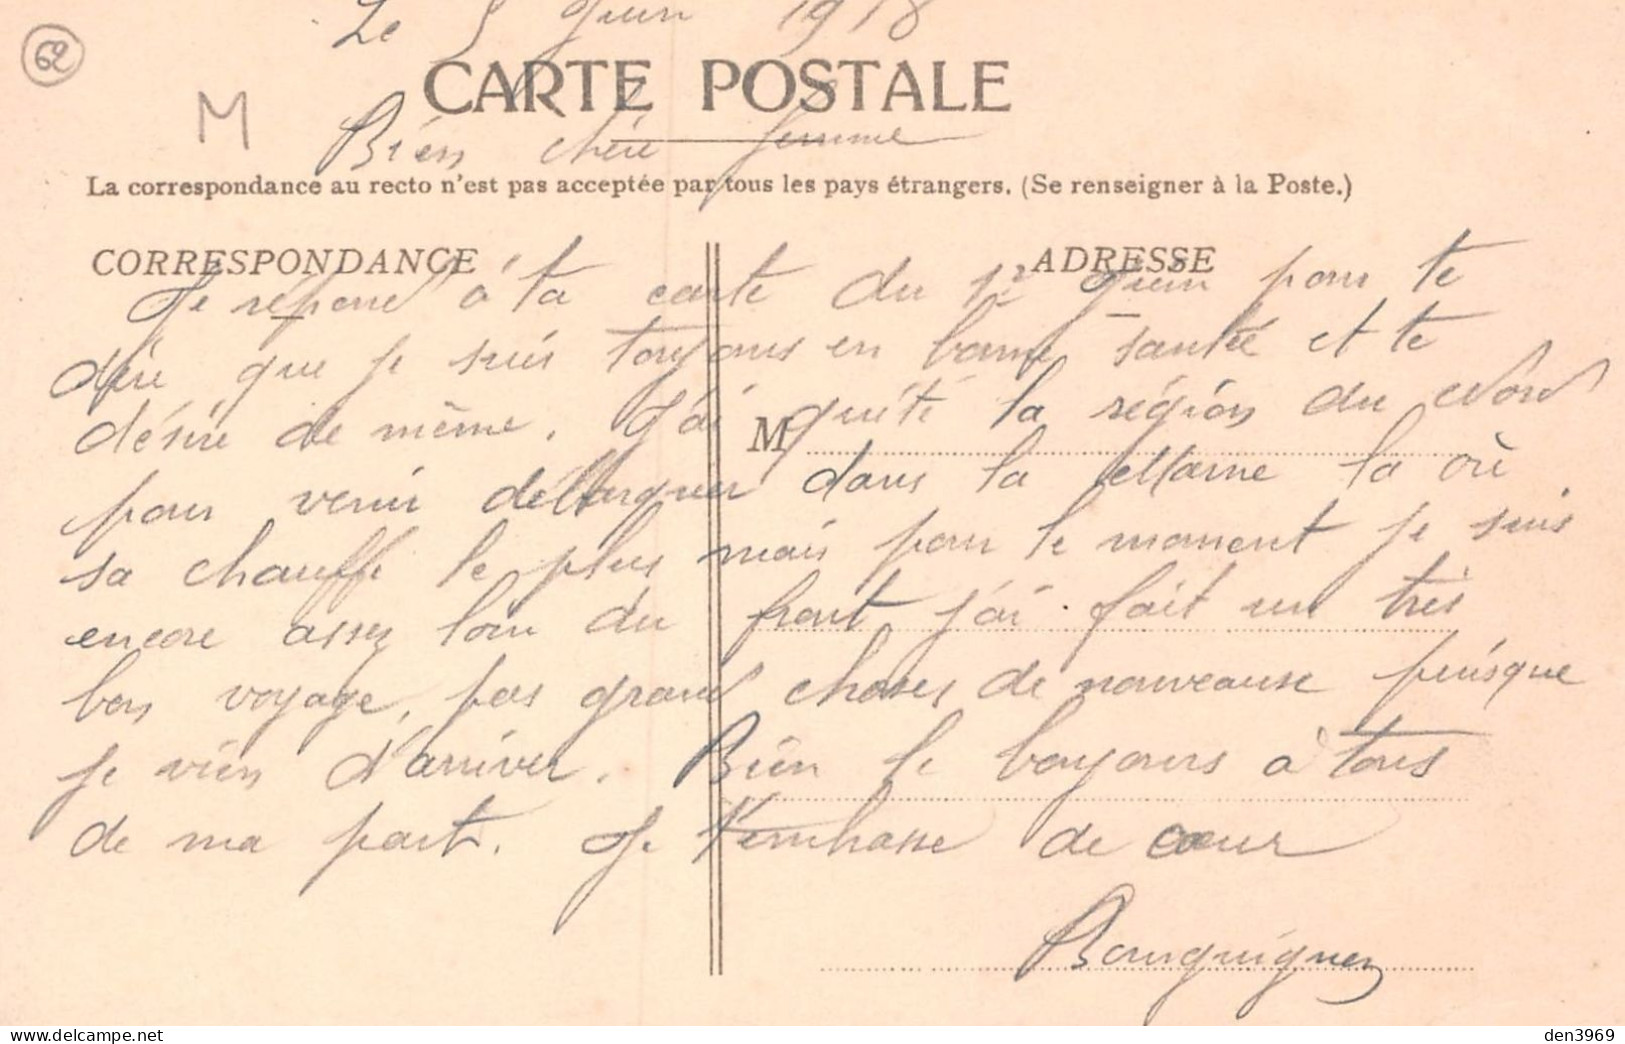 Le 5 Juin 1918
62
CARTE POSTALE
M
Bien chère femme
La correspondance au recto n'est pas acceptée par tous les pays étrangers. (Se renseigner à la Poste.)
CORRESPONDANCE
ADRESSE
Je répond à ta carte du 1r Juin pour te
dire que je suis toujours en bonne santée et te
désire de même. J'ai quité la région du Nord
M
pour venir débarquer dans la Marne la où
sa chauffe le plus mais pour le moment je suis
encore assez loin du front j'ai fait un très
bon voyage, pas grand choses de nouveause puisque
je vien d'arriver. Bien le bonjours à tous
de ma part. Je t'embrasse de cœur
Bourguignon
www.delcampe.net
den3969